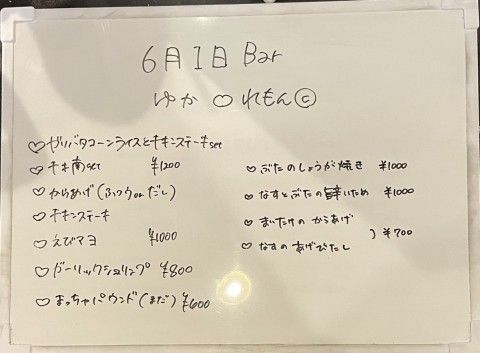 6月1日 Bar
ゆか♡れもんⓒ
♡ガリバタコーンライスとチキンステーキset
♡チキ南set ¥1200
♡からあげ(ふつうorだし)
♡チキンステーキ
♡えびマヨ ¥1000
♡ガーリックシュリンプ ¥800
♡まっちゃパウンド(まだ) ¥600
♡ぶたのしょうが焼き ¥1000
♡なすとぶたの辛いため ¥1000
♡まいたけのからあげ
♡なすのあげびたし ) ¥700